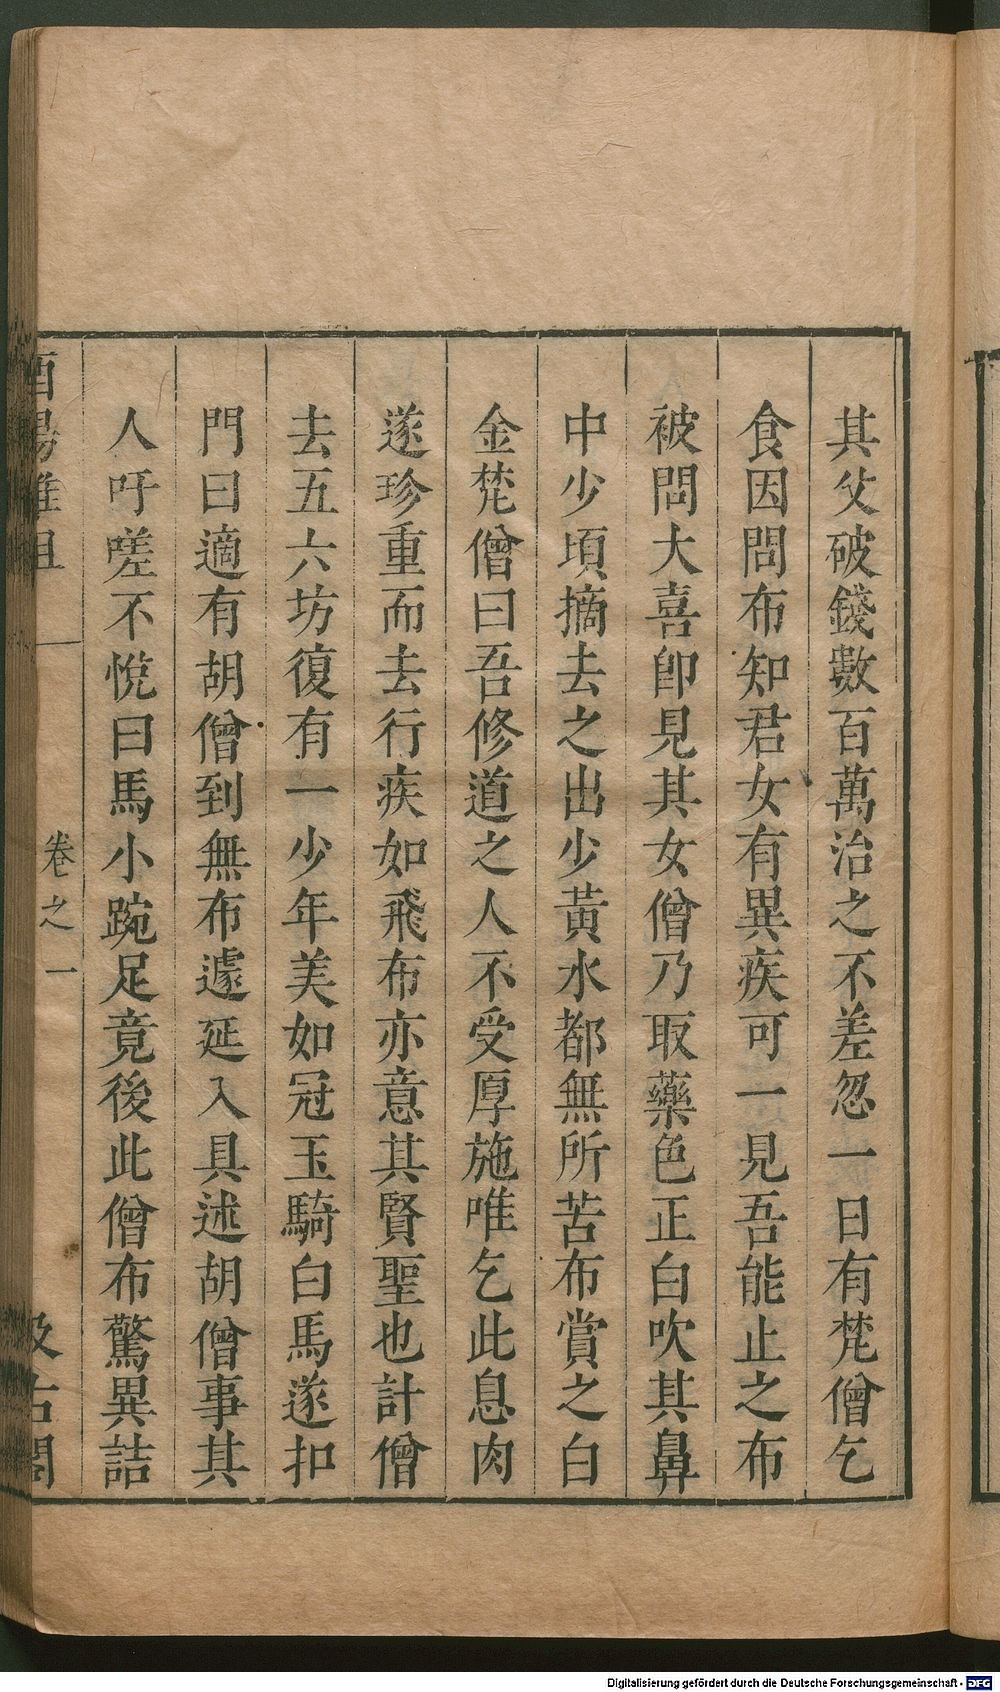 其父破錢數百萬治之不差忽一日有梵僧乞
食因問布知君女有異疾可一見吾能止之布
被問大喜卽見其女僧乃取藥色正白吹其鼻
中少頃摘去之出少黃水都無所苦布賞之白
金梵僧曰吾修道之人不受厚施唯乞此息肉
遂珍重而去行疾如飛布亦意其賢聖也計僧
去五六坊復有一少年美如冠玉騎白馬遂扣
門曰適有胡僧到無布遽延入具述胡僧事其
人吁嗟不悅曰馬小踠足竟後此僧布驚異詰
酉陽雜俎
卷之一
汲古閣
Digitalisierung gefördert durch die Deutsche Forschungsgemeinschaft - DFG